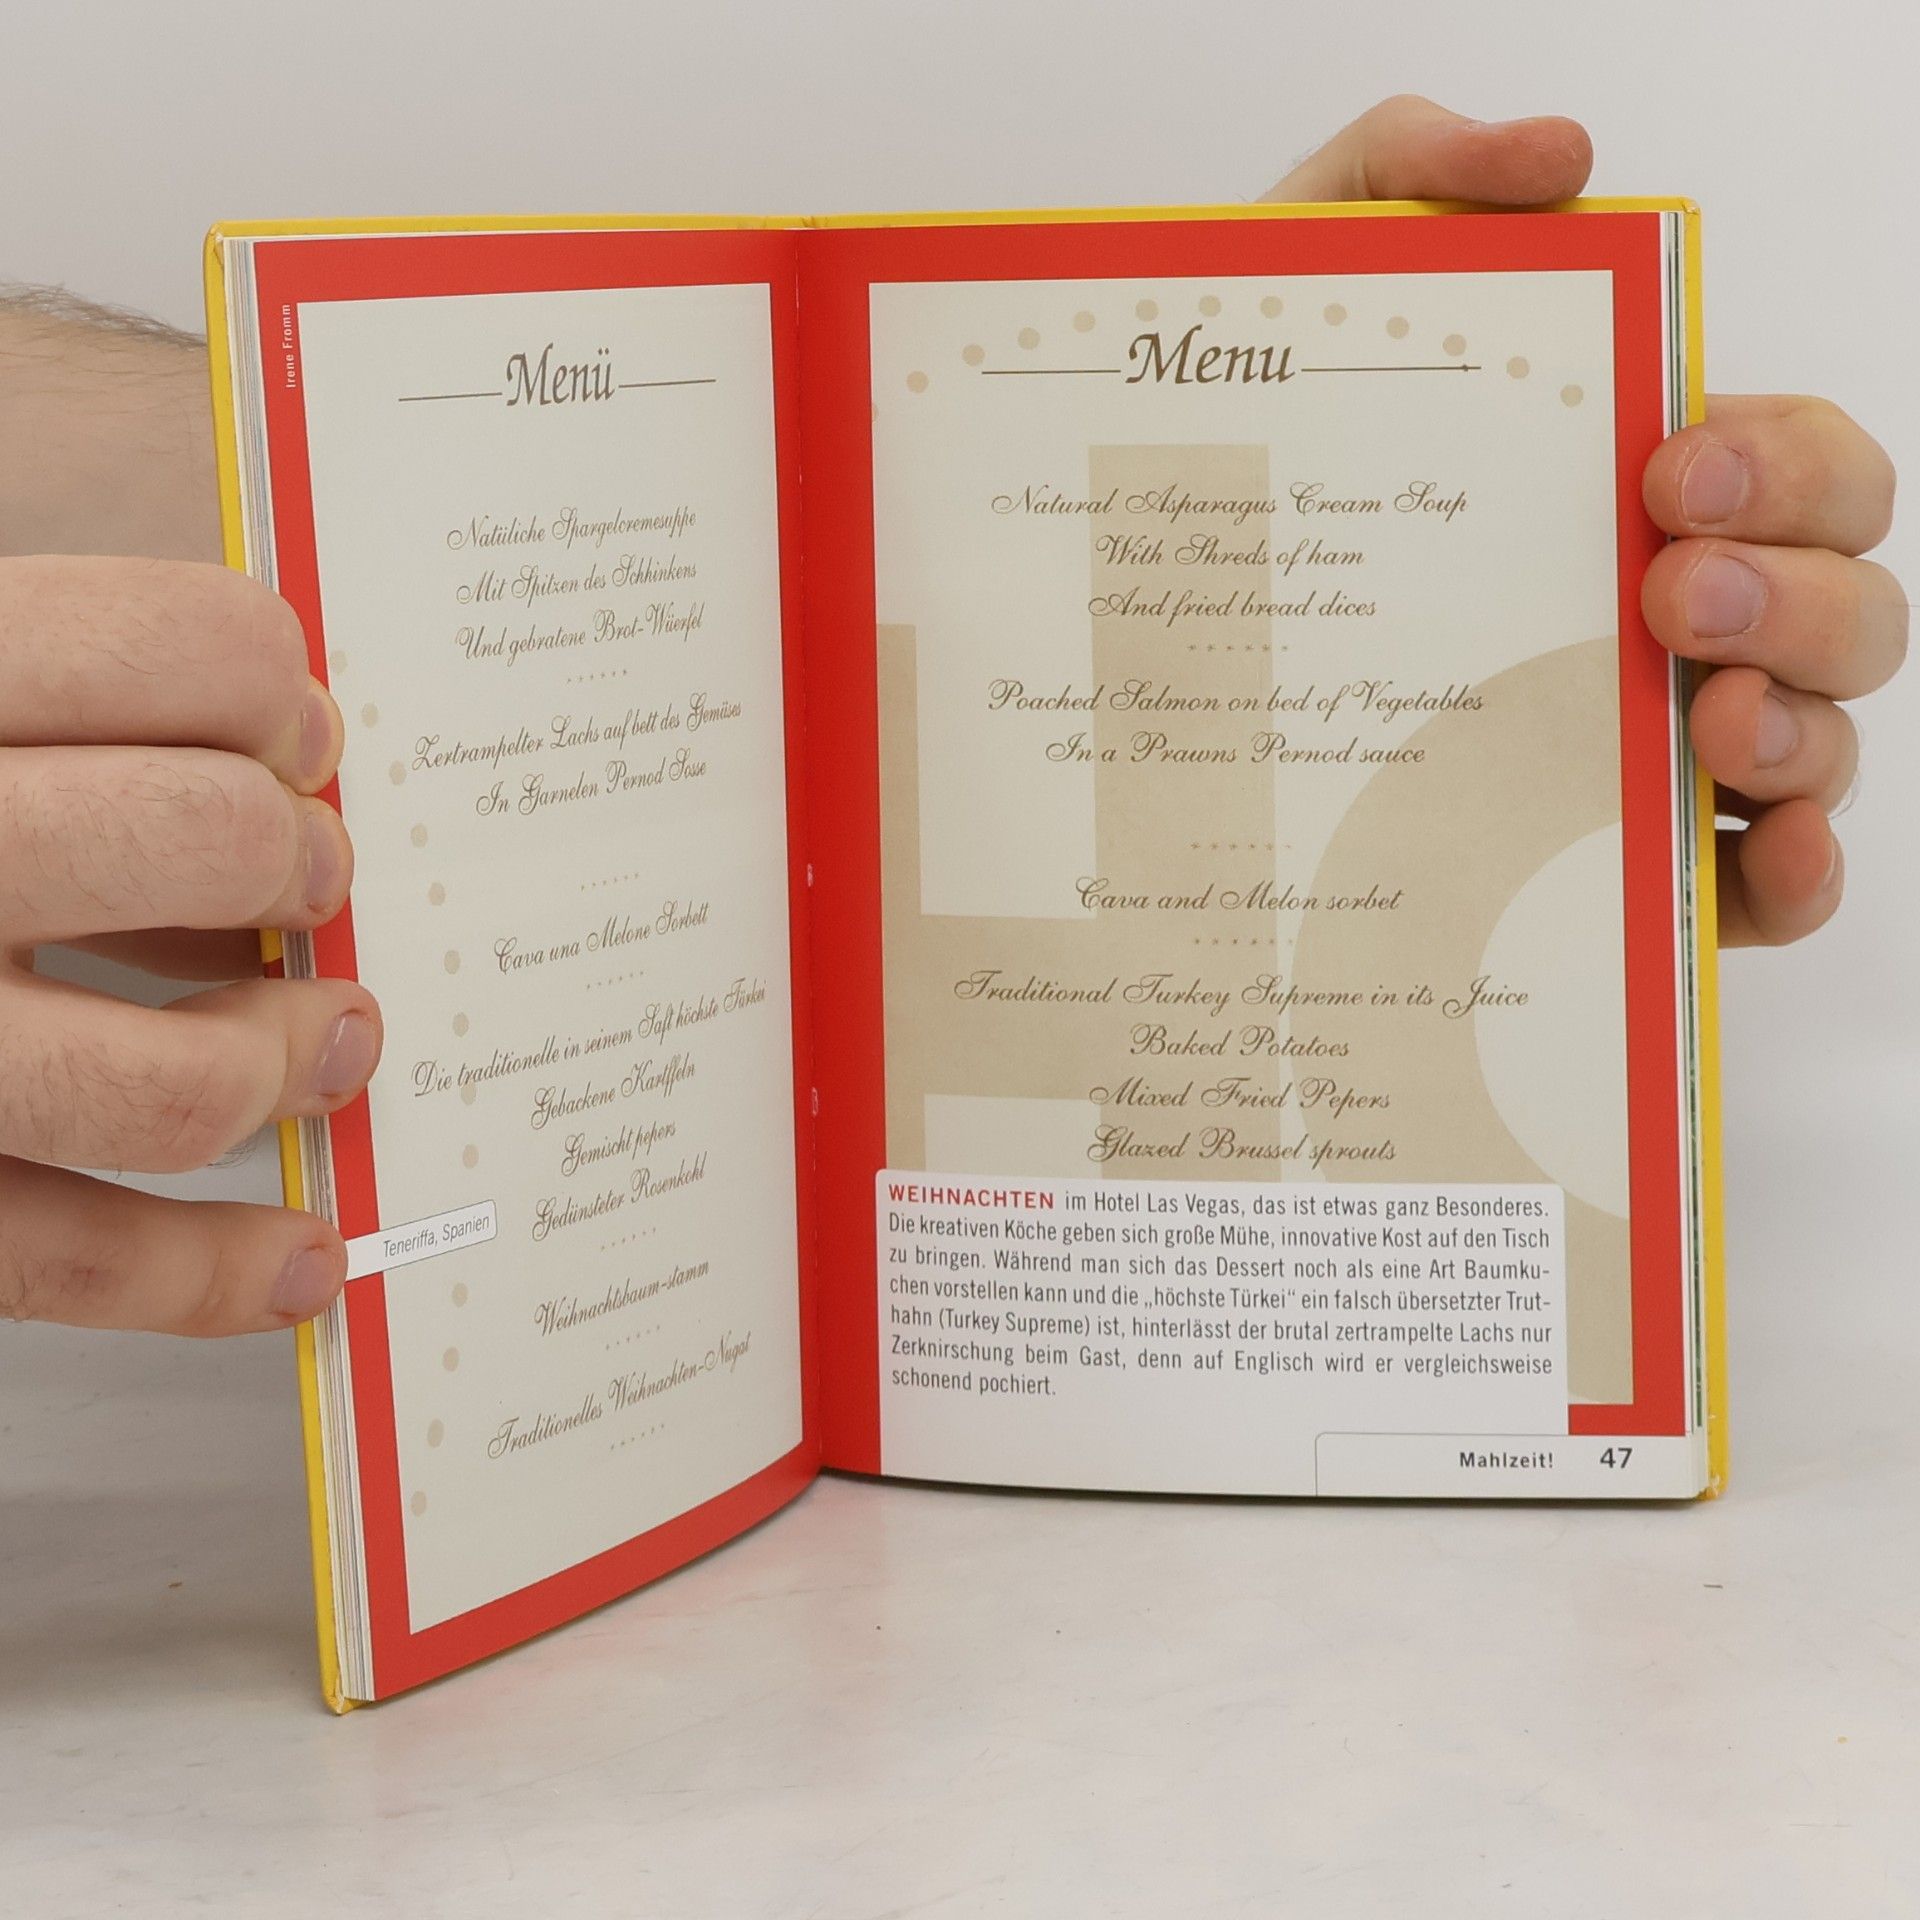 Irene Fromm
Menü
Natüliche Spargelcremesuppe
Mit Spitzen des Schhinkens
Und gebratene Brot-Wüerfel
******
Zertrampelter Lachs auf bett des Gemüses
In Garnelen Pernod Sosse
******
Cava una Melone Sorbett
******
Die traditionelle in seinem Saft höchste Türkei
Gebackene Kartffeln
Gemischt pepers
Gedünsteter Rosenkohl
******
Weihnachtsbaum-stamm
******
Traditionelles Weihnachten-Nugat
******
Teneriffa, Spanien
Menu
Natural Asparagus Cream Soup
With Shreds of ham
And fried bread dices
******
Poached Salmon on bed of Vegetables
In a Prawns Pernod sauce
******
Cava and Melon sorbet
******
Traditional Turkey Supreme in its Juice
Baked Potatoes
Mixed Fried Pepers
Glazed Brussel sprouts
WEIHNACHTEN im Hotel Las Vegas, das ist etwas ganz Besonderes.
Die kreativen Köche geben sich große Mühe, innovative Kost auf den Tisch
zu bringen. Während man sich das Dessert noch als eine Art Baumku-
chen vorstellen kann und die „höchste Türkei“ ein falsch übersetzter Trut-
hahn (Turkey Supreme) ist, hinterlässt der brutal zertrampelte Lachs nur
Zerknirschung beim Gast, denn auf Englisch wird er vergleichsweise
schonend pochiert.
Mahlzeit! 47